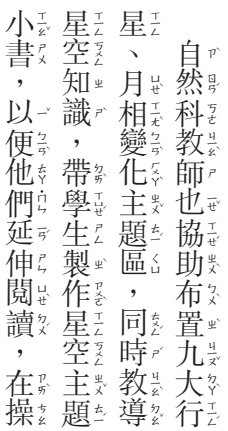 自然科教師也協助布置九大行
星、月相變化主題區，同時教導
星空知識，帶學生製作星空主題
小書，以便他們延伸閱讀，在操